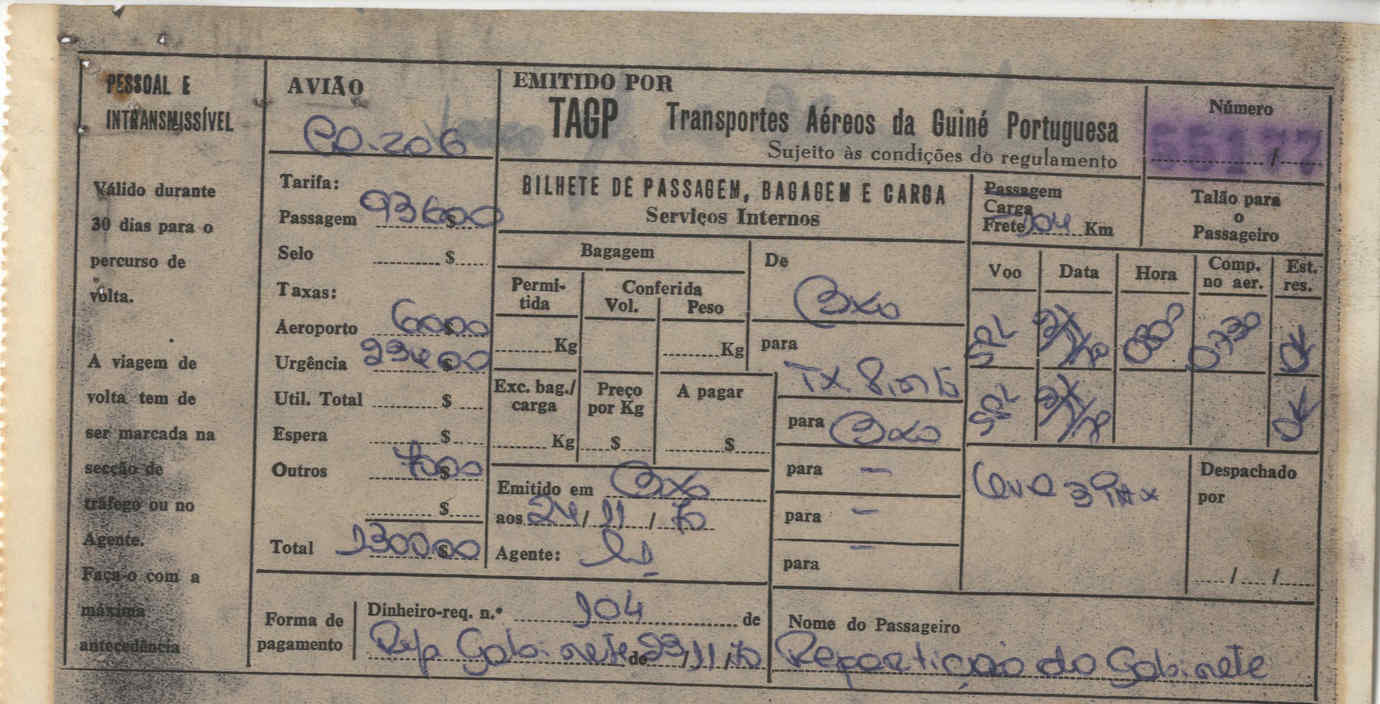 PESSOAL E
INTRANSMISSÍVEL
Válido durante
30 dias para o
percurso de
volta.
A viagem de
volta tem de
ser marcada na
secção de
tráfego ou no
Agente.
Faça-o com a
máxima
antecedência
AVIÃO
CO.206
Tarifa:
Passagem 936$00
Selo $
Taxas:
Aeroporto 60$00
Urgência 234$00
Util. Total $
Espera $
Outros 70$00
$
Total 1300$00
EMITIDO POR
TAGP Transportes Aéreos da Guiné Portuguesa
Sujeito às condições do regulamento
Número
55177
BILHETE DE PASSAGEM, BAGAGEM E CARGA
Serviços Internos
Passagem
Carga
Frete 104 Km
Talão para
o
Passageiro
Bagagem
Permitida
Conferida
Vol. Peso
Kg Kg
Exc. bag./
carga
Preço
por Kg
A pagar
Kg $ $
Emitido em Bxo
aos 24/11/70
Agente:
De
Bxo
para
Tx. Pinto
para Bxo
para -
para -
para -
Voo Data Hora Comp. no aer. Est. res.
SPL 0800 0730 OK
SPL OK
Leva 3 Pax
Despachado
por
/ /
Forma de
pagamento
Dinheiro-req. n.º 104 de
Rep Gabinete de 23/11/70
Nome do Passageiro
Repartição do Gabinete